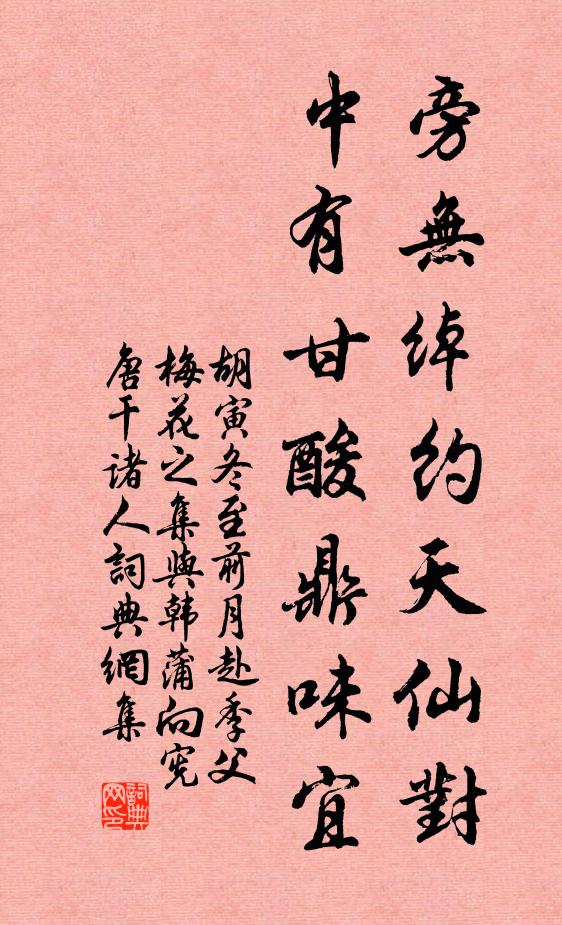 旁無綽約天仙對
中有甘酸鼎味宜
胡寅冬至前月赴季父
梅花之集與韩蒲向宪
唐干诸人詞典網集
詞典网印